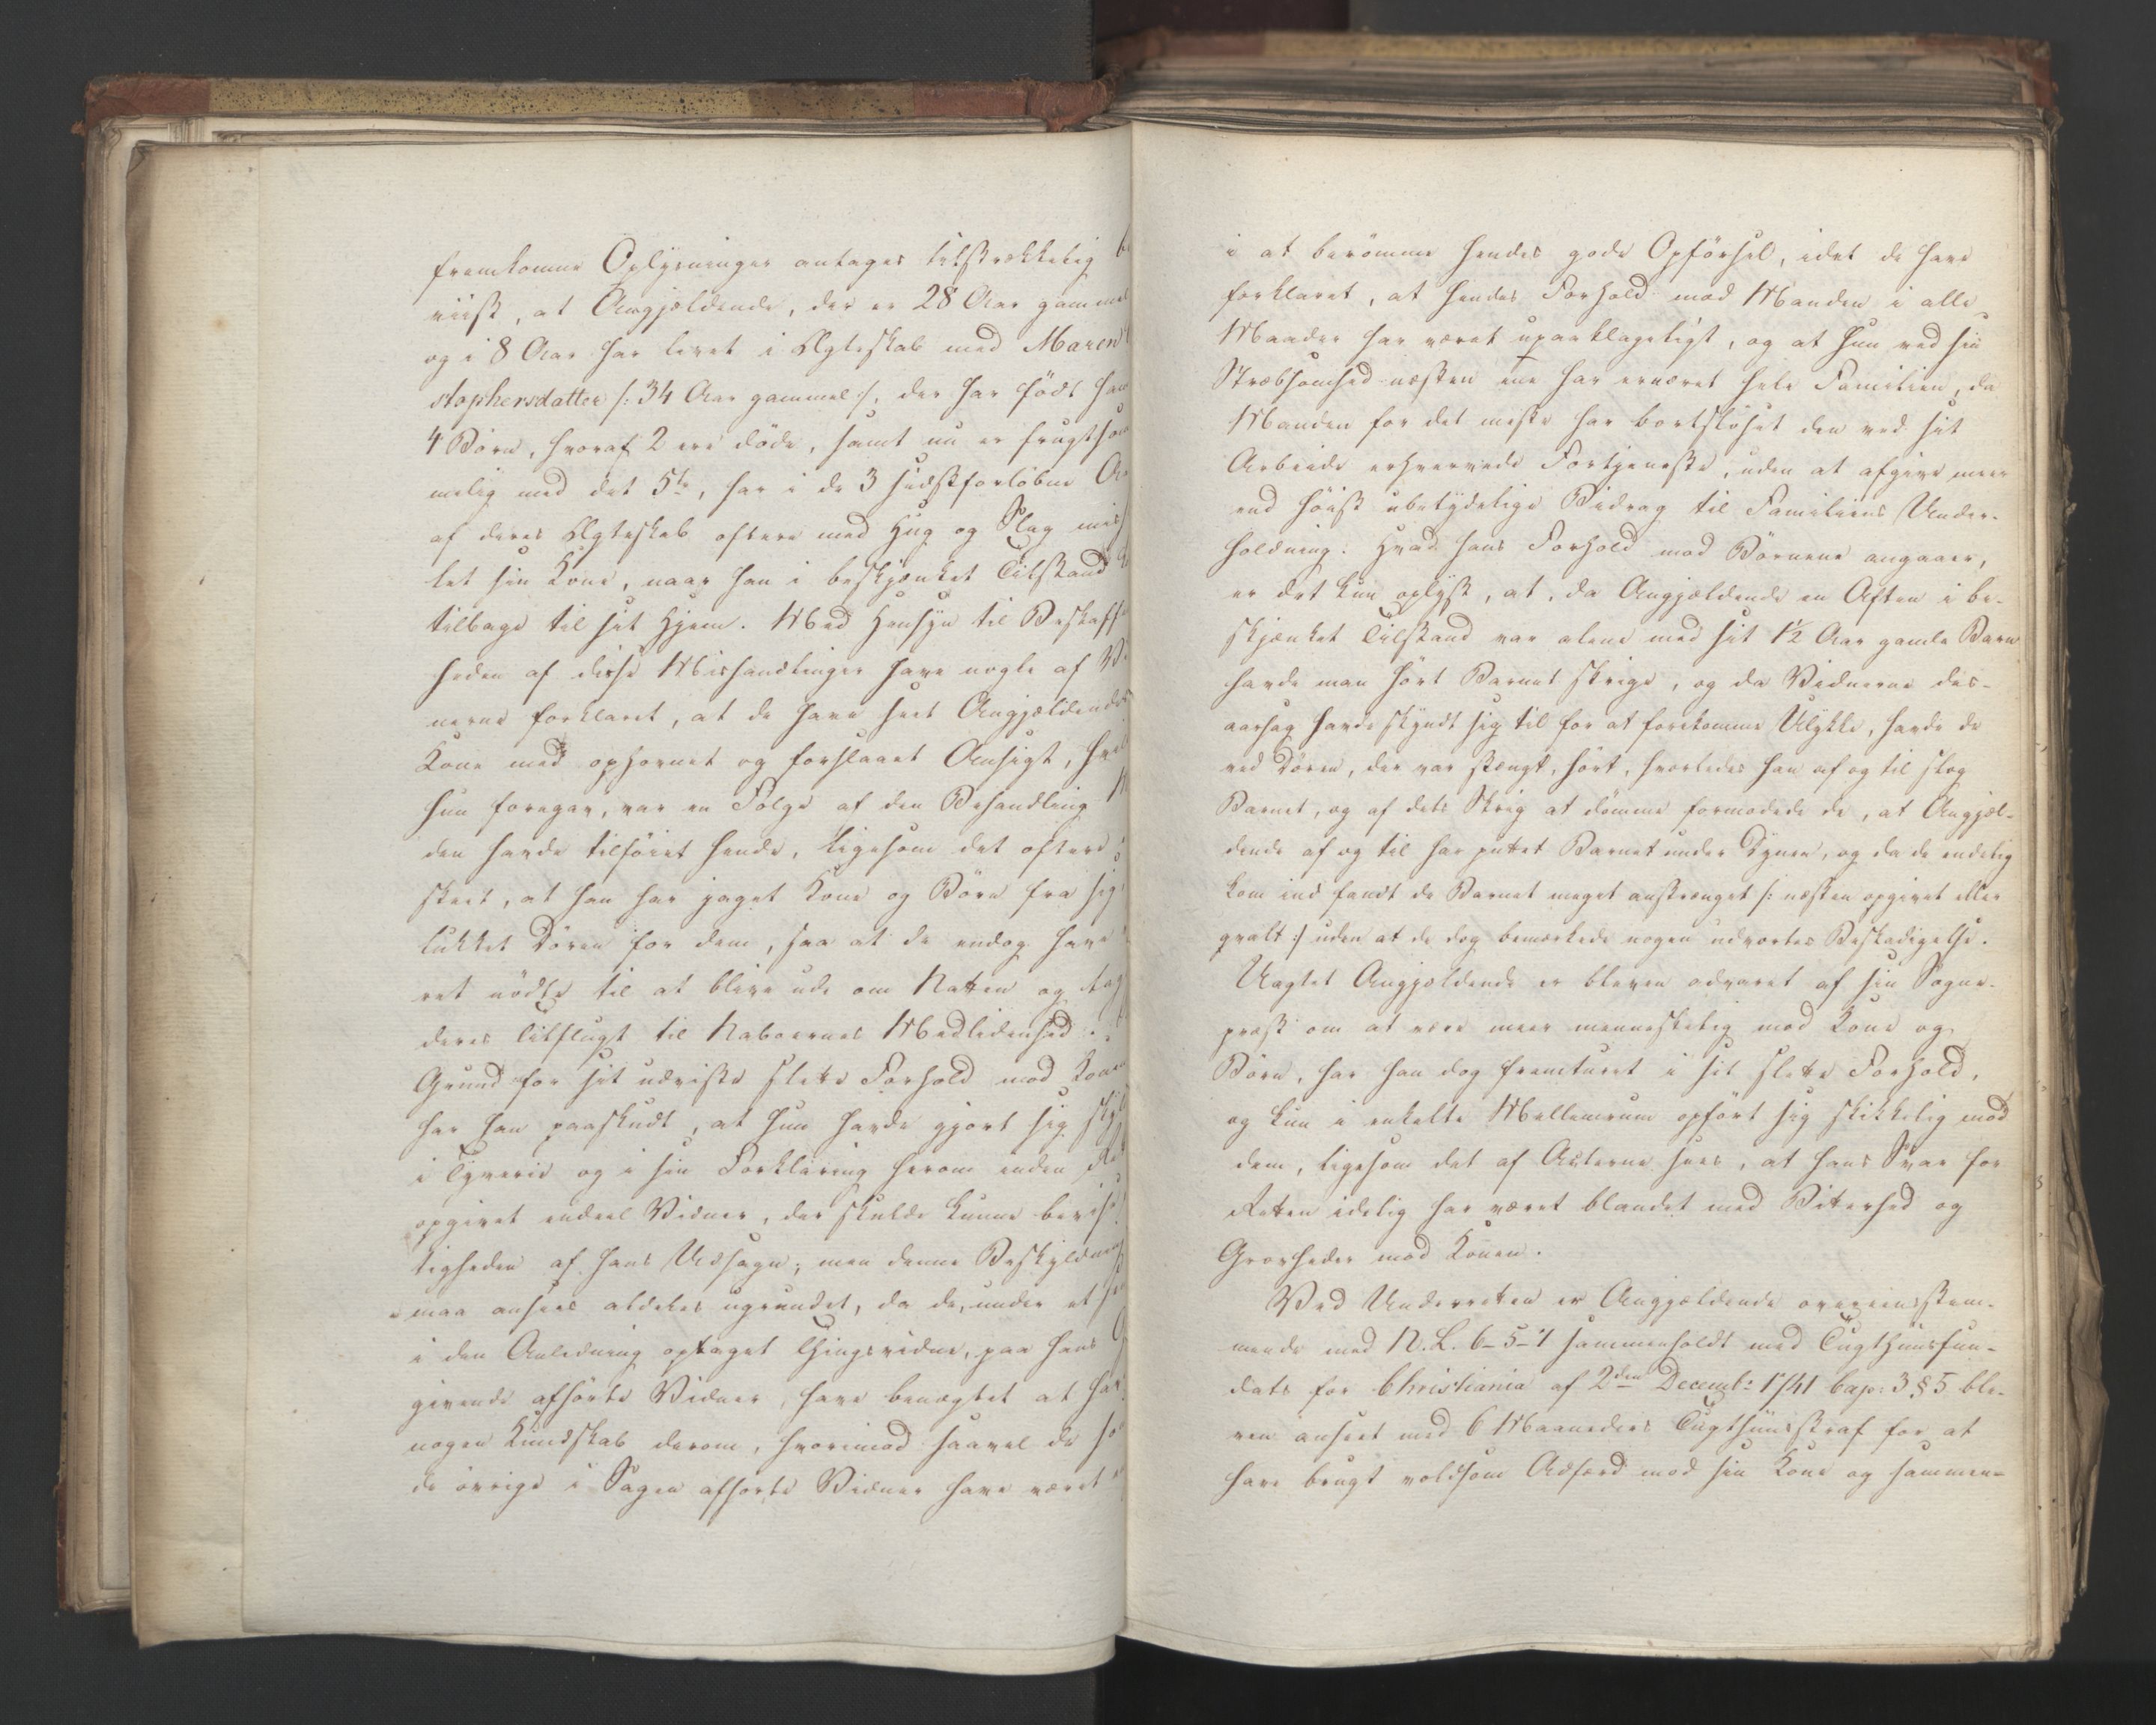 fremkomne Oplysninger antages tilstrækkelig be
viist, at Angjældende, der er 28 Aar gammel
og i 8 Aar har levet i Ægteskab med Maren
stophersdatter /: 34 Aar gammel :/, der har födt ham
4 Börn, hvoraf 2 ere döde, samt nu er frugtsom
melig med det 5te, har i de 3 sidstforløbne Aar
af deres Ægteskab oftere med Hug og Slag mis
let sin Kone, naar han i beskjænket Tilstand
tilbage til sit Hjem. Med Hensyn til Beskaff
heden af disse Mishandlinger have nogle af Vi
nerne forklaret, at de have seet Angjældendes
Kone med ophovnet og forslaaet Ansigt, hvil
hun foregav, var en Følge af den Behandling
den havde tilföiet hende, ligesom det oftere
skeet, at han har jaget Kone og Börn fra sig
lukket Dören for dem, saa at de endog have
ret nödte til at blive ude om Natten og tag
deres Tilflugt til Naboernes Medlidenhed.
Grund for sit udviste slette Forhold mod Konen
har han paaskudt, at hun havde gjort sig skyl
i Tyverie og i sin Forklaring herom inden Ret
opgivet endeel Vidner, der skulde kunne bevise
tigheden af hans Udsagn; men denne Beskyldning
maa ansees aldeles ugrundet, da de, under et
i den Anledning optaget Thingsvidne, paa hans
givende afhörte Vidner, have benægtet at hav
nogen Kundskab derom, hvorimod saavel de so
de övrige i Sagen afhörte Vidner have været
i at berömme hendes gode Opförsel, idet de have
forklaret, at hendes Forhold mod Manden i alle
Maader har været upaaklageligt, og at hun ved sin
Stræbsomhed næsten ene har ernæret hele Familien, da
Manden for det meste har bortslöset den ved sit
Arbeide erhvervede Fortjeneste, uden at afgive meer
end höist ubetydelige Bidrag til Familiens Under-
holdning. Hvad hans Forhold mod Börnene angaaer,
er det kun oplyst, at, da Angjældende en Aften i be-
skjænket Tilstand var alene med sit 1½ Aar gamle Barn
havde man hört Barnet skrige, og da Vidnerne des-
aarsag havde skyndt sig til for at forekomme Ulykke, havde de
ved Dören, der var stængt, hört, hvorledes han af og til slog
Barnet, og af dets Skrig at dömme formodede de, at Angjæl-
dende af og til har puttet Barnet under Dynen, og da de endelig
kom ind fandt de Barnet meget anstrænget /: næsten opgivet eller
qvalt :/ uden at de dog bemærkede nogen udvortes Beskadigelse.
Uagtet Angjældende er bleven advaret af sin Sogne-
præst om at være meer menneskelig mod Kone og
Börn, har han dog fremturet i sit slette Forhold,
og kun i enkelte Mellemrum opfört sig skikkelig mod
dem, ligesom det af Acterne sees, at hans Svar for
Retten idelig har været blandet med Bitterhed og
Grovheder mod Konen.
Ved Underretten er Angjældende overeensstem-
mende med N. L. 6-5-7 sammenholdt med Tugthuusfun-
dats for Christiania af 2den Decembr 1741 Cap: 3 § 5 ble-
ven anseet med 6 Maaneders Tugthuusstraf for at
have brugt voldsom Adfærd mod sin Kone og sammen-